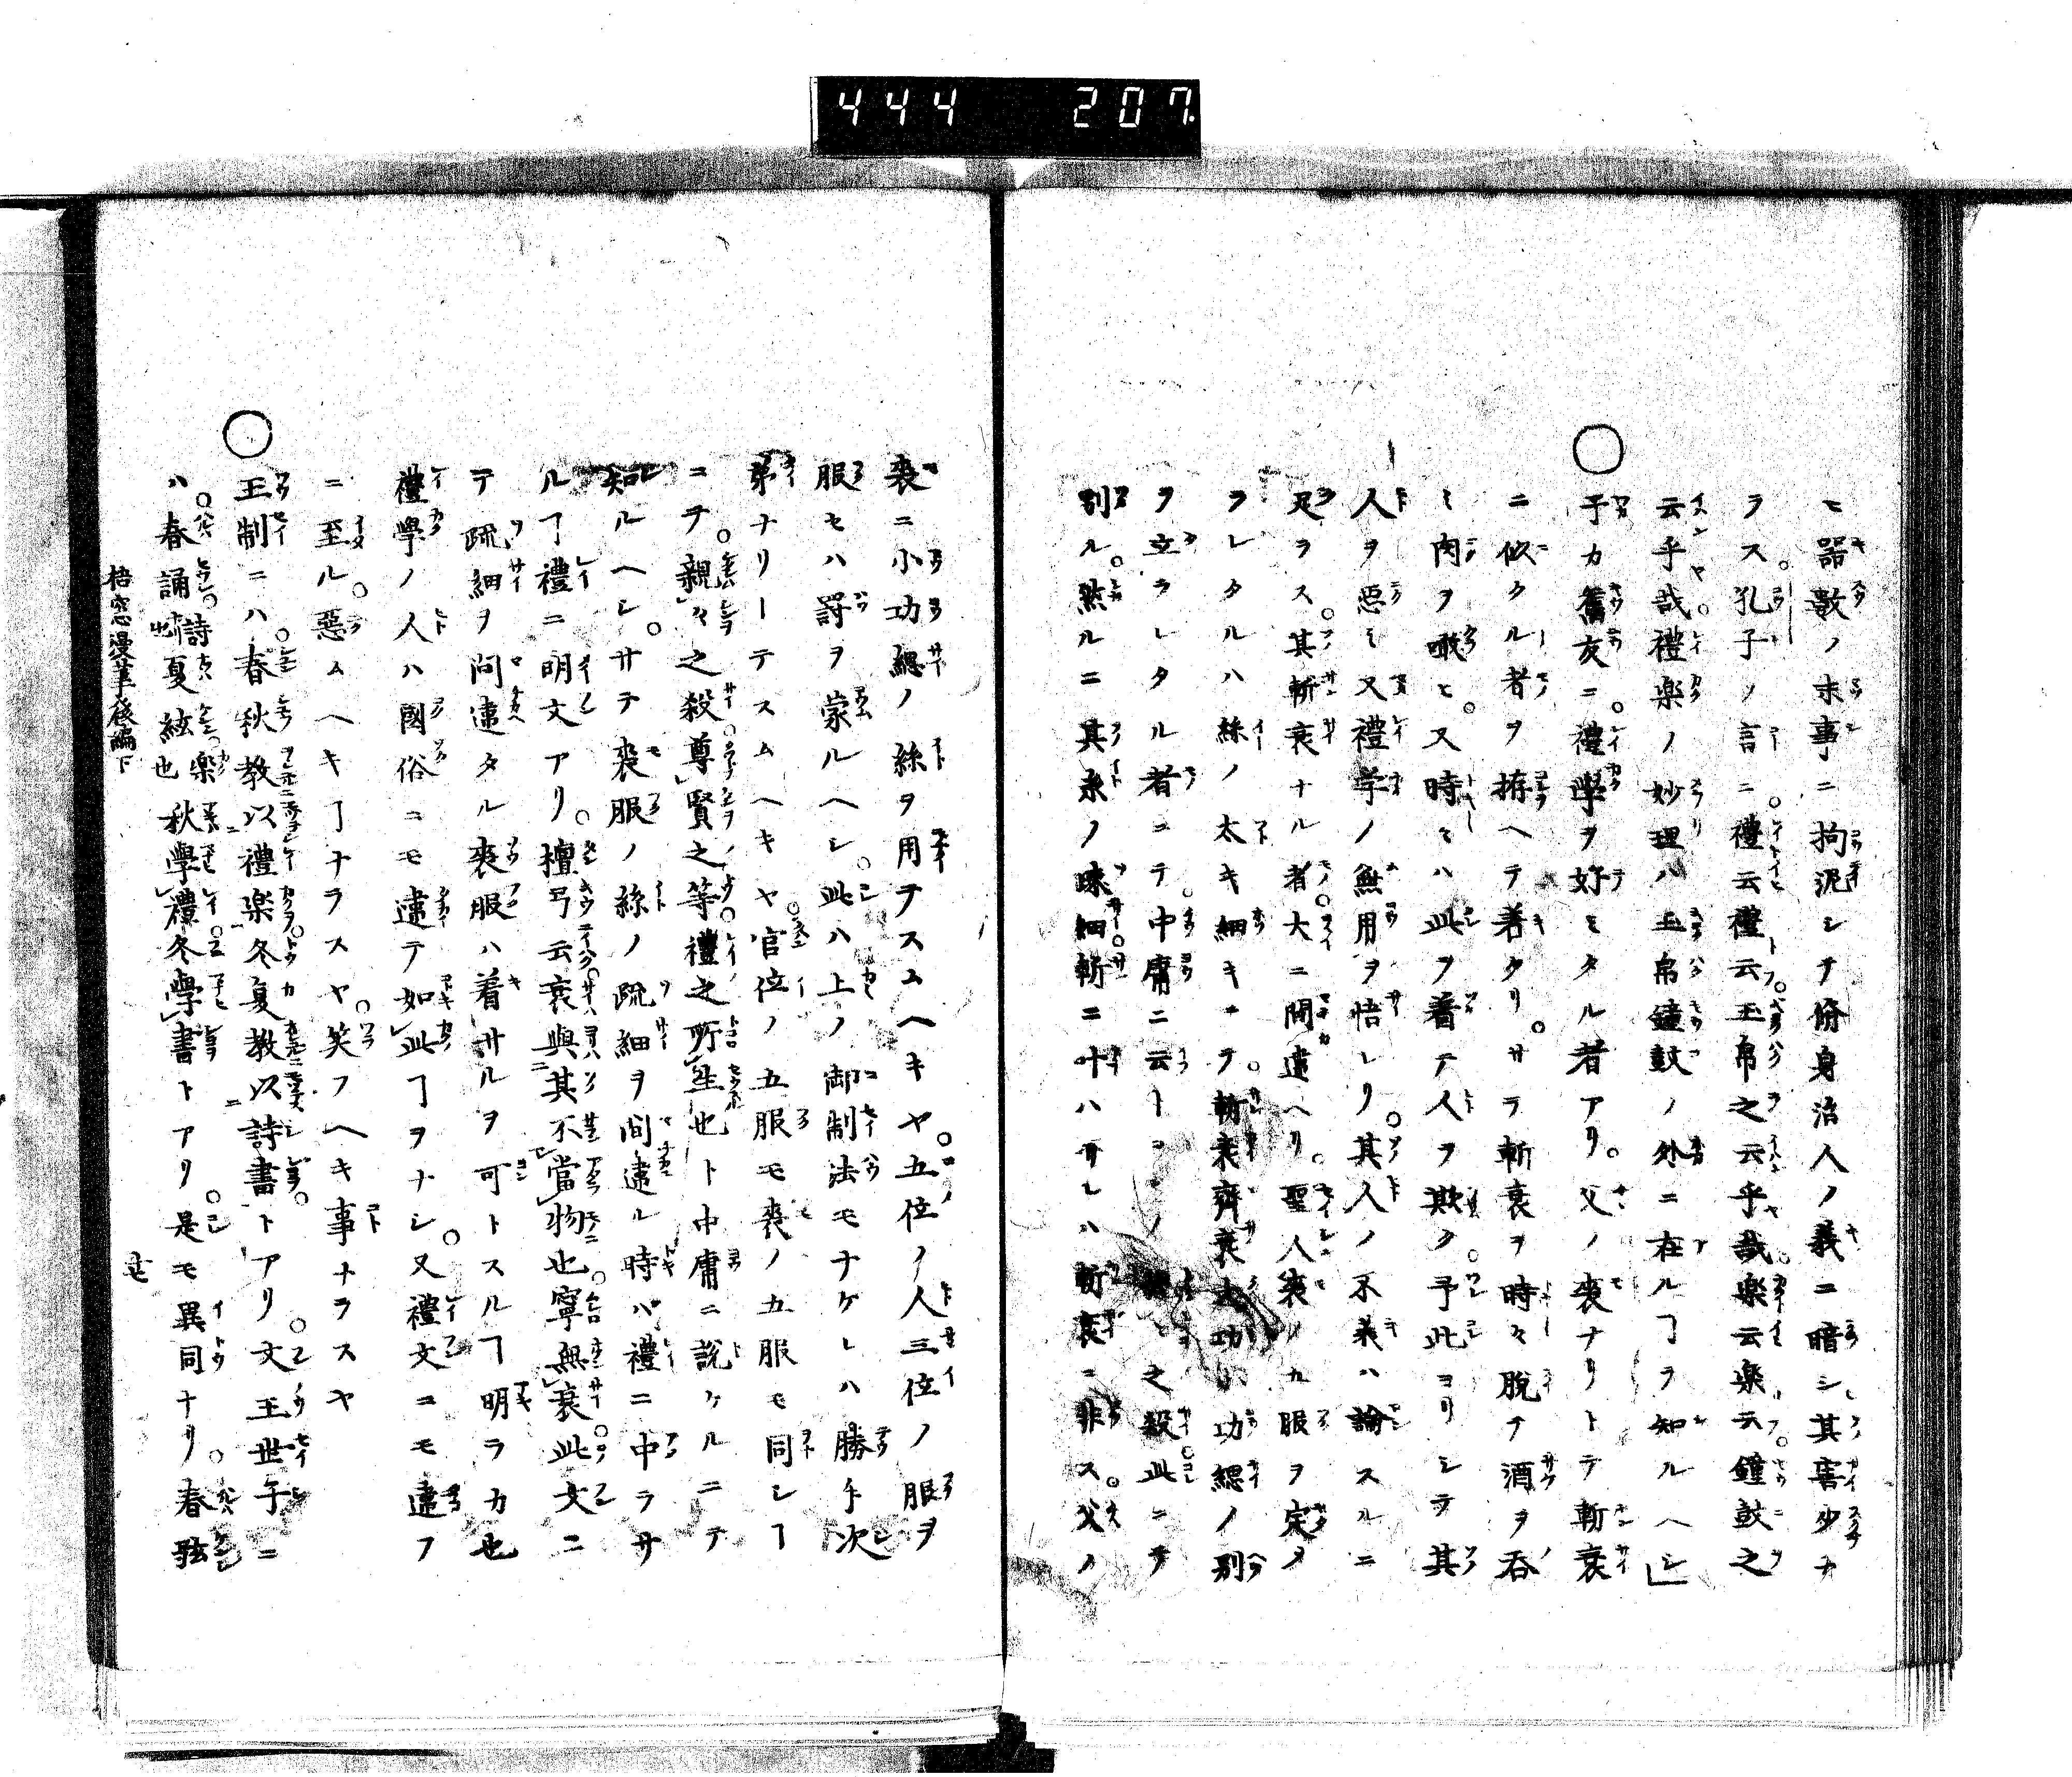 444 207.
ヒ器數ノ末事ニ拘泥シテ脩身治人ノ義ニ暗シ其害少ナ
ラス孔子ノ言ニ禮云禮云玉帛之云乎哉樂云樂云鐘鼓之
云乎哉禮樂ノ妙理ハ玉帛鐘鼓ノ外ニ在ルヿヲ知ルヘシ」
○予カ舊友ニ禮學ヲ好ミタル者アリ父ノ喪ナリトテ斬衰
ニ似タル者ヲ拵ヘテ著タリサラ斬衰ヲ時々脫テ酒ヲ呑
ミ肉ヲ噉ヒ又時々ハ此ヲ着テ人ヲ欺ク予此ヨリシテ其
人ヲ惡ミ又禮学ノ無用ヲ悟レリ其人ノ不義ハ論スルニ
足ラス其斬衰ナル者大ニ間違ヘリ聖人喪ノ五服ヲ定メ
ラレタルハ絲ノ太キ細キヲ斬衰齊衰大功小功緦ノ別
ヲ立ラレタル者ニテ中庸ニ云トコロノ親々之殺此ニテ
別ル然ルニ其糸ノ疎細斬ニ叶ハサレハ斬衰ニ非ス父ノ
喪ニ小功緦ノ絲ヲ用テスムヘキヤ五位ノ人三位ノ服ヲ
服セハ罸ヲ蒙ルヘシ此ハ上ノ御制法モナケレハ勝手次
第ナリーテスムヘキヤ官位ノ五服モ喪ノ五服モ同シヿ
ニテ親々之殺尊賢之等禮之所生也ト中庸ニ說ケルニテ
知ルヘシサテ喪服ノ絲ノ疏細ヲ間違ル時ハ禮ニ中ラサ
ルヿ禮ニ明文アリ檀弓云衰與其不當物也寧無衰此文ニ
テ疏細ヲ間違タル喪服ハ着サルヲ可トスルヿ明ラカ也
禮學ノ人ハ國俗ニモ違テ如此ヿヲナシ又禮文ニモ違フ
ニ至ル惡ムヘキヿナラスヤ笑フヘキ事ナラスヤ
○王制ニハ春秋教以禮樂冬夏教以詩書トアリ文王世子ニ
ハ春誦詩也夏絃樂也秋學禮冬學書トアリ是モ異同ナリ春弦
梧窓漫筆後編下